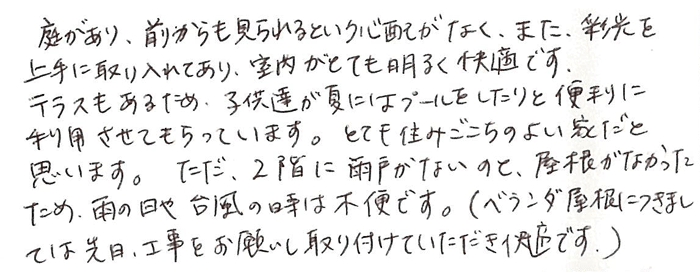 庭があり、前からも見られるという心配がなく、また、彩光を
上手に取り入れてあり、室内がとても明るく快適です。
テラスもあるため、子供達が夏にはプールをしたりと便利に
利用させてもらっています。とても住みごこちのよい家だと
思います。ただ、2階に雨戸がないのと、屋根がなかった
ため、雨の日や台風の時は不便です。(ベランダ屋根につきまし
ては先日、工事をお願いし取り付けていただき快適です。)